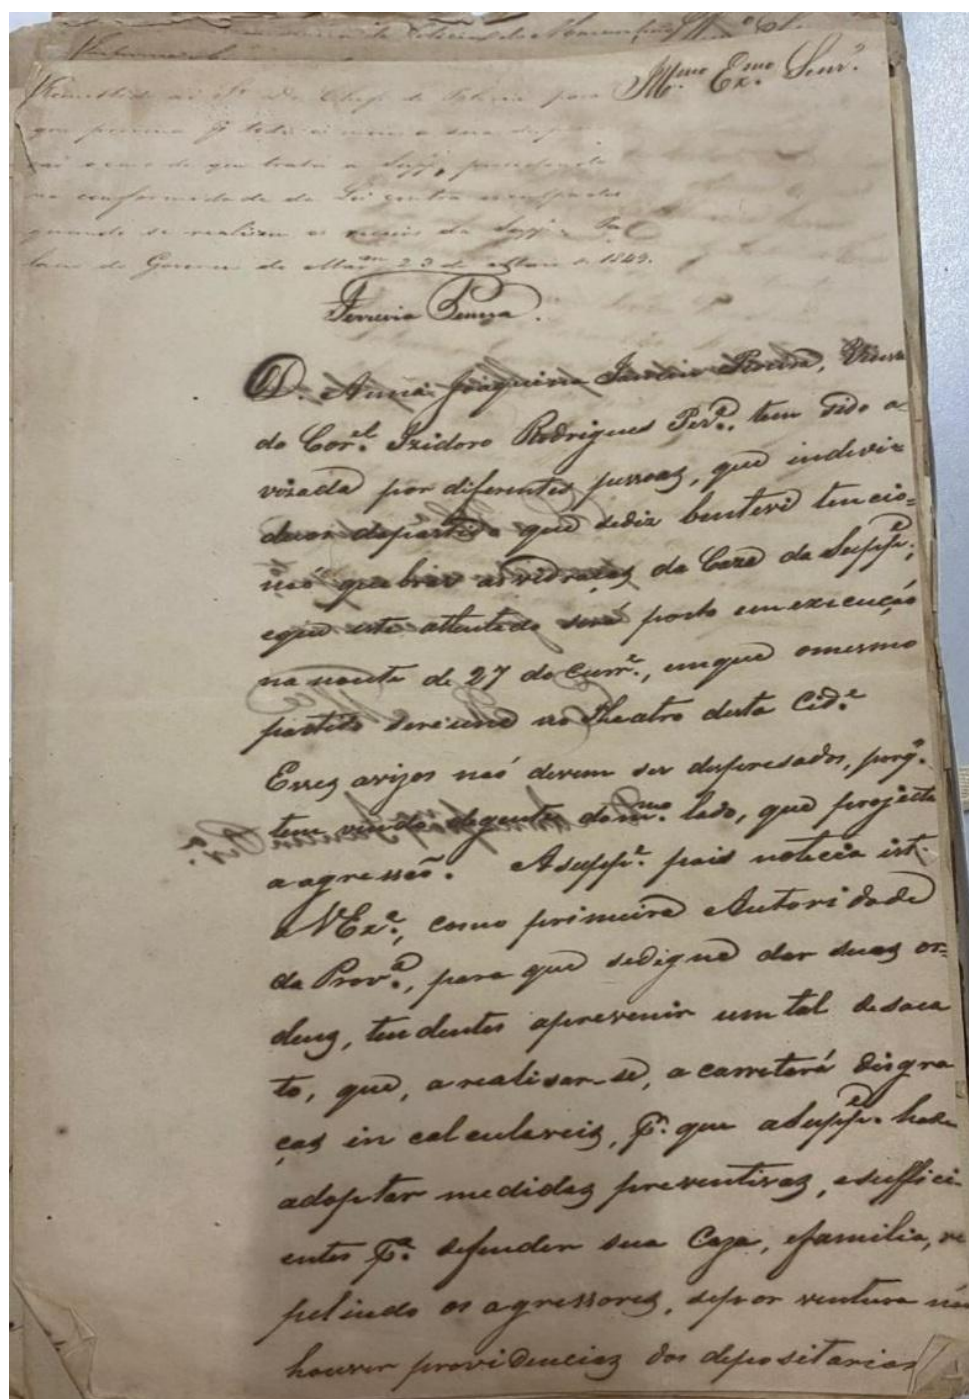 Ill.mo Ex.mo Senr.
Remettido ao Sr. Dr. Chefe de Policia para
que
de que trata a Supp.e procedendo
na conformidade da Lei contra os culpados
quando se realizem os receios da Supp.e Pa
lacio do Governo do Mar.am 23 de 1849.
Ferreira Penna.
D. Anna Joaquina Jansen Pereira, Viuva
do Cor.el Izidoro Rodrigues Per.a, tem sido a-
vizada por diferentes pessoas, que indivi-
duos dopartido que sediz bentevi tencio-
naó quebrar asvidraças da Caza da Supp.e,
eque este attentado será posto em execução
na noute de 27 do curr.e, emque omesmo
partido sereune no Theatro desta Cid.e
Esses avizos naó devem ser despresados, porq.
tem vindo degente dom.mo lado, que projecta
a agressaõ. Asupp.e pois noticia ist.
a VEx.a, como primeira Autoridade
da Prov.a, para que sedigne dar suas or-
dens, tendentes aprevenir um tal desaca
to, que, arealisar-se, acarretará disgra
ças incalculaveis, p.r que aSupp.e hade
adoptar medidas preventivas, esuffici-
entes p.a defender sua Caza, efamilia, re
pelindo os agressores, sepor ventura naó
houver providencias dos depositarios